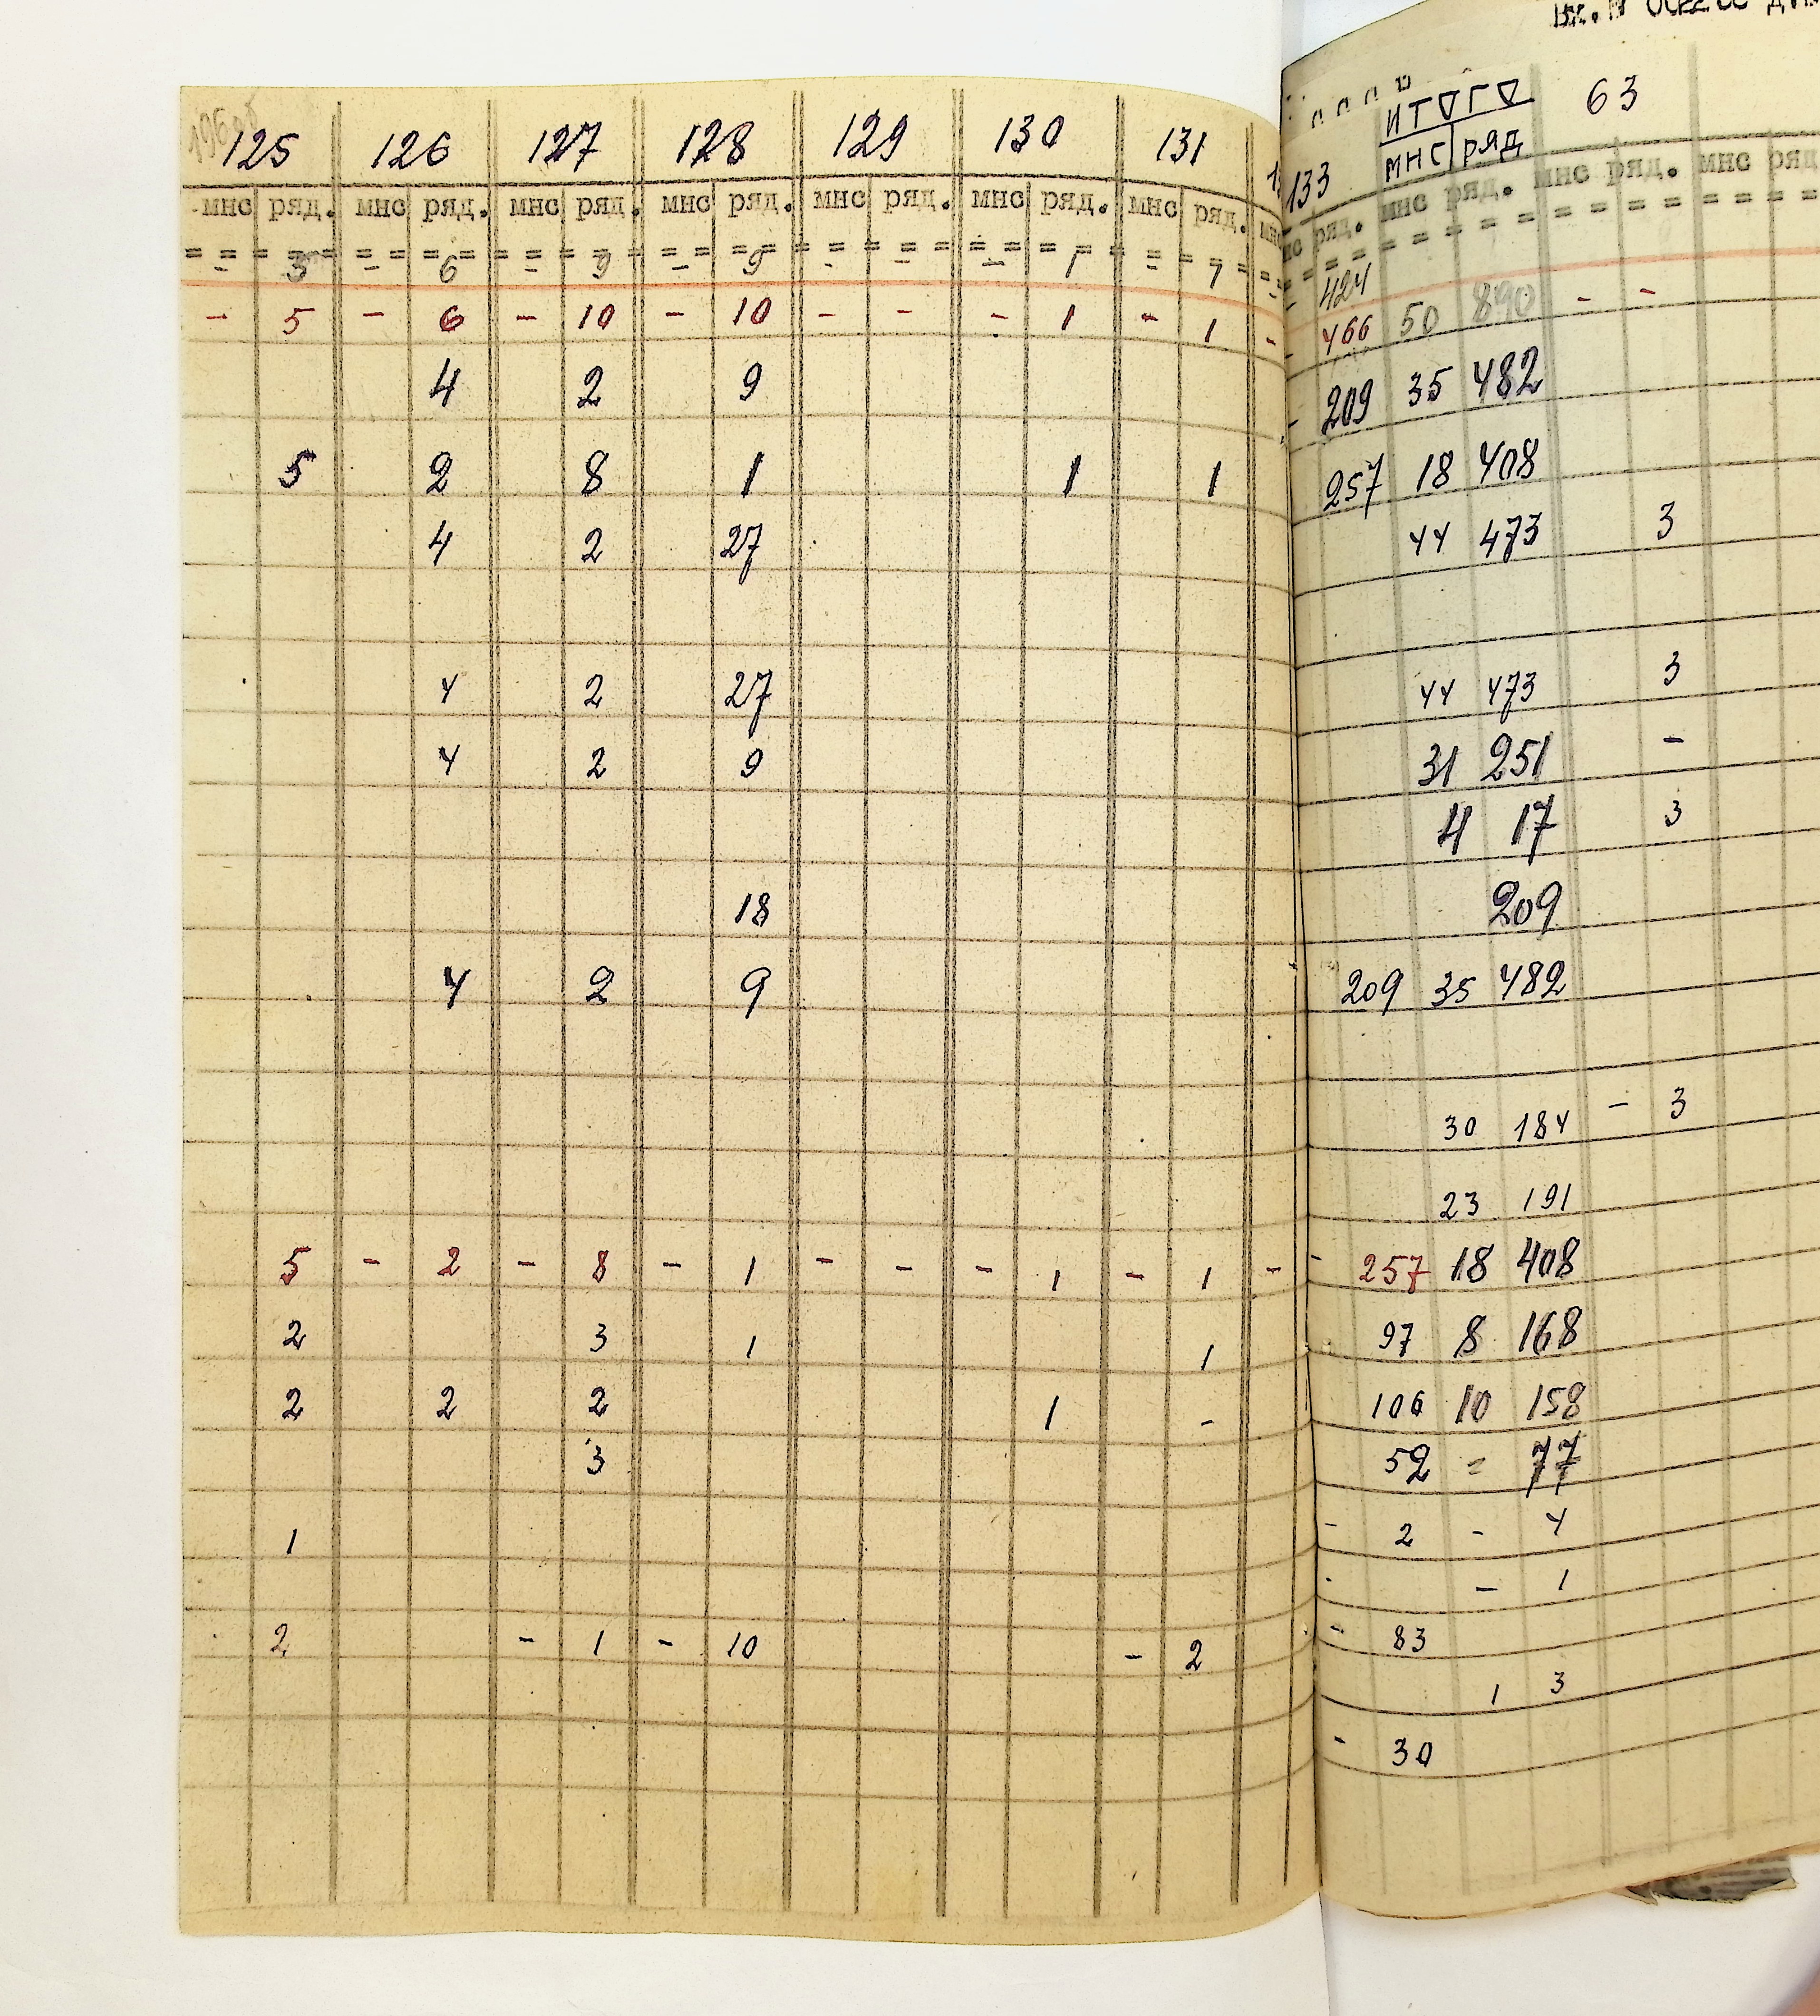 125 126 127 128 129 130 131
мнс ряд. мнс ряд. мнс ряд. мнс ряд. мнс ряд. мнс ряд. мнс ряд. мнс
= = = = = = = = = = = = = = = = = = = = = = = = = = =
- 3 - 6 - 9 - 9 - - - 1 - 1
- 5 - 6 - 10 - 10 - - - 1 - 1 -
4 2 9
5 2 8 1 1 1
4 2 27
4 2 27
4 2 9
18
4 2 9
5 - 2 - 8 - 1 - - - 1 - 1 -
2 3 1 1
2 2 2 1 -
3
1
2 - 1 - 10 - 2
30
133 ИТОГО 63
мнс ряд
ряд. мнс ряд. мнс ряд. мнс ряд
= = = = = = = = = = = = = =
- 424
- 466 50 890 - -
- 209 35 482
257 18 408
44 473 3
44 473 3
31 251 -
4 17 3
209
209 35 482
30 184 - 3
23 191
- 257 18 408
97 8 168
106 10 158
52 = 77
- 2 - 4
- 1
- 83
1 3
- 30